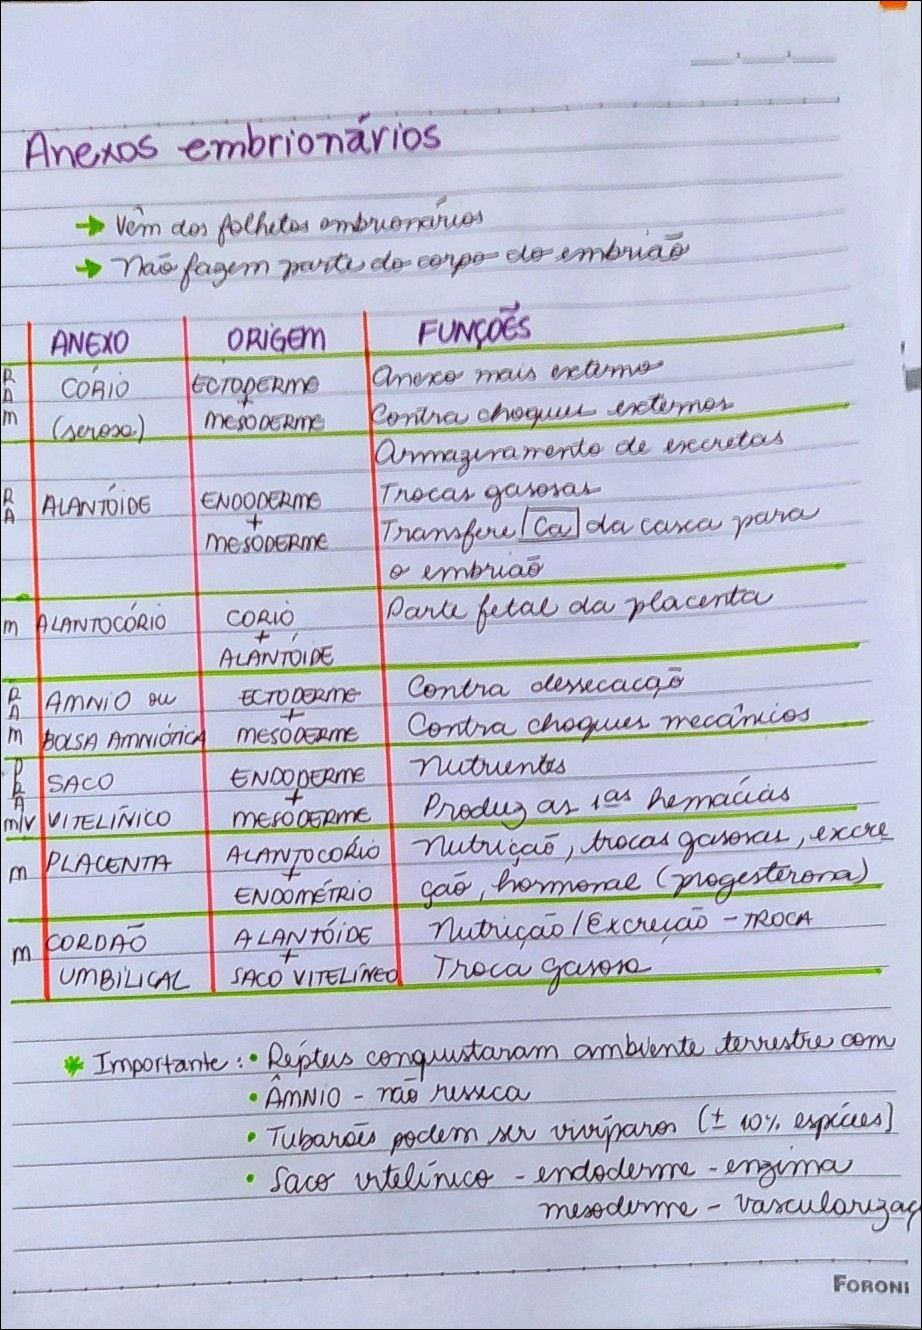 Anexos embrionários
→ Vêm dos folhetos embrionários
→ Não fazem parte do corpo do embrião
ANEXO ORIGEM FUNÇÕES
R A m CÓRIO (serosa) ECTODERME + MESODERME Anexo mais externo
Contra choques externos
R A ALANTÓIDE ENDODERME + MESODERME Armazenamento de excretas
Trocas gasosas
Transfere Ca da casca para
o embrião
m ALANTOCÓRIO CORIO + ALANTÓIDE Parte fetal da placenta
R A m AMNIO ou BOLSA AMNIÓTICA ECTODERME + MESODERME Contra dessecação
Contra choques mecânicos
P R A m/v SACO VITELÍNICO ENDODERME + MESODERME Nutrientes
Produz as 1as hemácias
m PLACENTA ALANTOCORIO + ENDOMÉTRIO Nutrição, trocas gasosas, excre
ção, hormonal (progesterona)
m CORDÃO UMBILICAL ALANTÓIDE + SACO VITELÍNEO Nutrição/Excreção - TROCA
Troca gasosa
* Importante: • Répteis conquistaram ambiente terrestre com
• ÂMNIO - não resseca
• Tubarões podem ser vivíparos (± 10% espécies)
• Saco vitelínico - endoderme - enzima
mesoderme - vascularizaç
FORONI